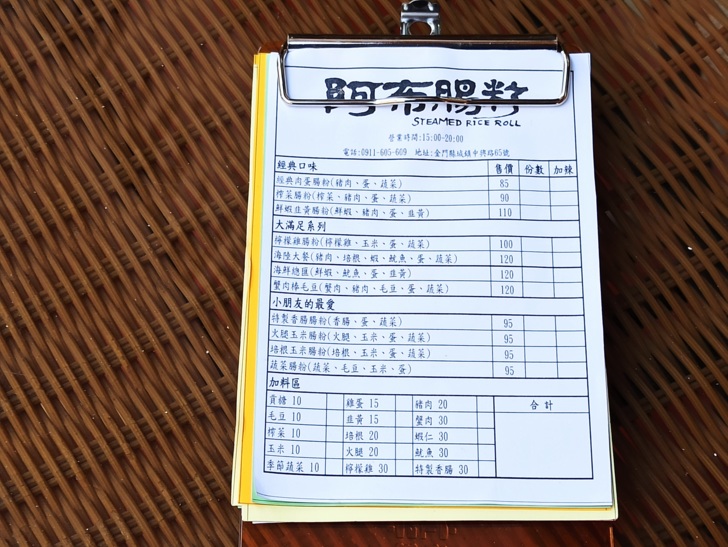 阿布腸粉
STEAMED RICE ROLL
營業時間:15:00-20:00
電話:0911-605-609 地址:金門縣城鎮中拷路65號
經典口味 售價 份數 加辣
經典肉蛋腸粉(豬肉、蛋、蔬菜) 85
榨菜腸粉(榨菜、豬肉、蛋、蔬菜) 90
鮮蝦韭黃腸粉(鮮蝦、豬肉、蛋、韭黃) 110
大滿足系列
檸檬雞腸粉(檸檬雞、玉米、蛋、蔬菜) 100
海陸大餐(豬肉、培根、蝦、魷魚、蛋、蔬菜) 120
海鮮總匯(鮮蝦、魷魚、蛋、韭黃) 120
蟹肉棒毛豆(蟹肉、豬肉、毛豆、蛋、蔬菜) 120
小朋友的最愛
特製香腸腸粉(香腸、蛋、蔬菜) 95
火腿玉米腸粉(火腿、玉米、蛋、蔬菜) 95
培根玉米腸粉(培根、玉米、蛋、蔬菜) 95
蔬菜腸粉(蔬菜、毛豆、玉米、蛋) 95
加料區
貢糖 10 雞蛋 15 豬肉 20 合計
毛豆 10 韭黃 15 蟹肉 30
榨菜 10 培根 20 蝦仁 30
玉米 10 火腿 20 魷魚 30
季節蔬菜 10 檸檬雞 30 特製香腸 30